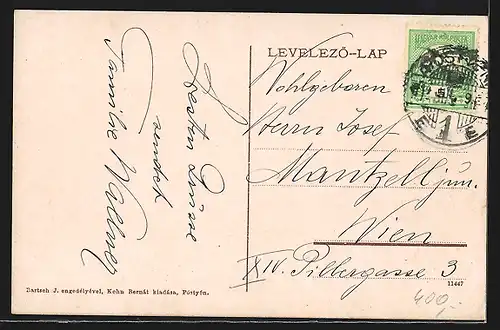 LEVELEZŐ-LAP
Besten Grüsse
sendet
Familie Wallner
Wohlgeboren
Herrn Josef
Mantzell jun.
Wien
XIV. Pillergasse 3
Bartsch J. engedélyével, Kohn Bernát kiadása, Pöstyén.
11447
400,-